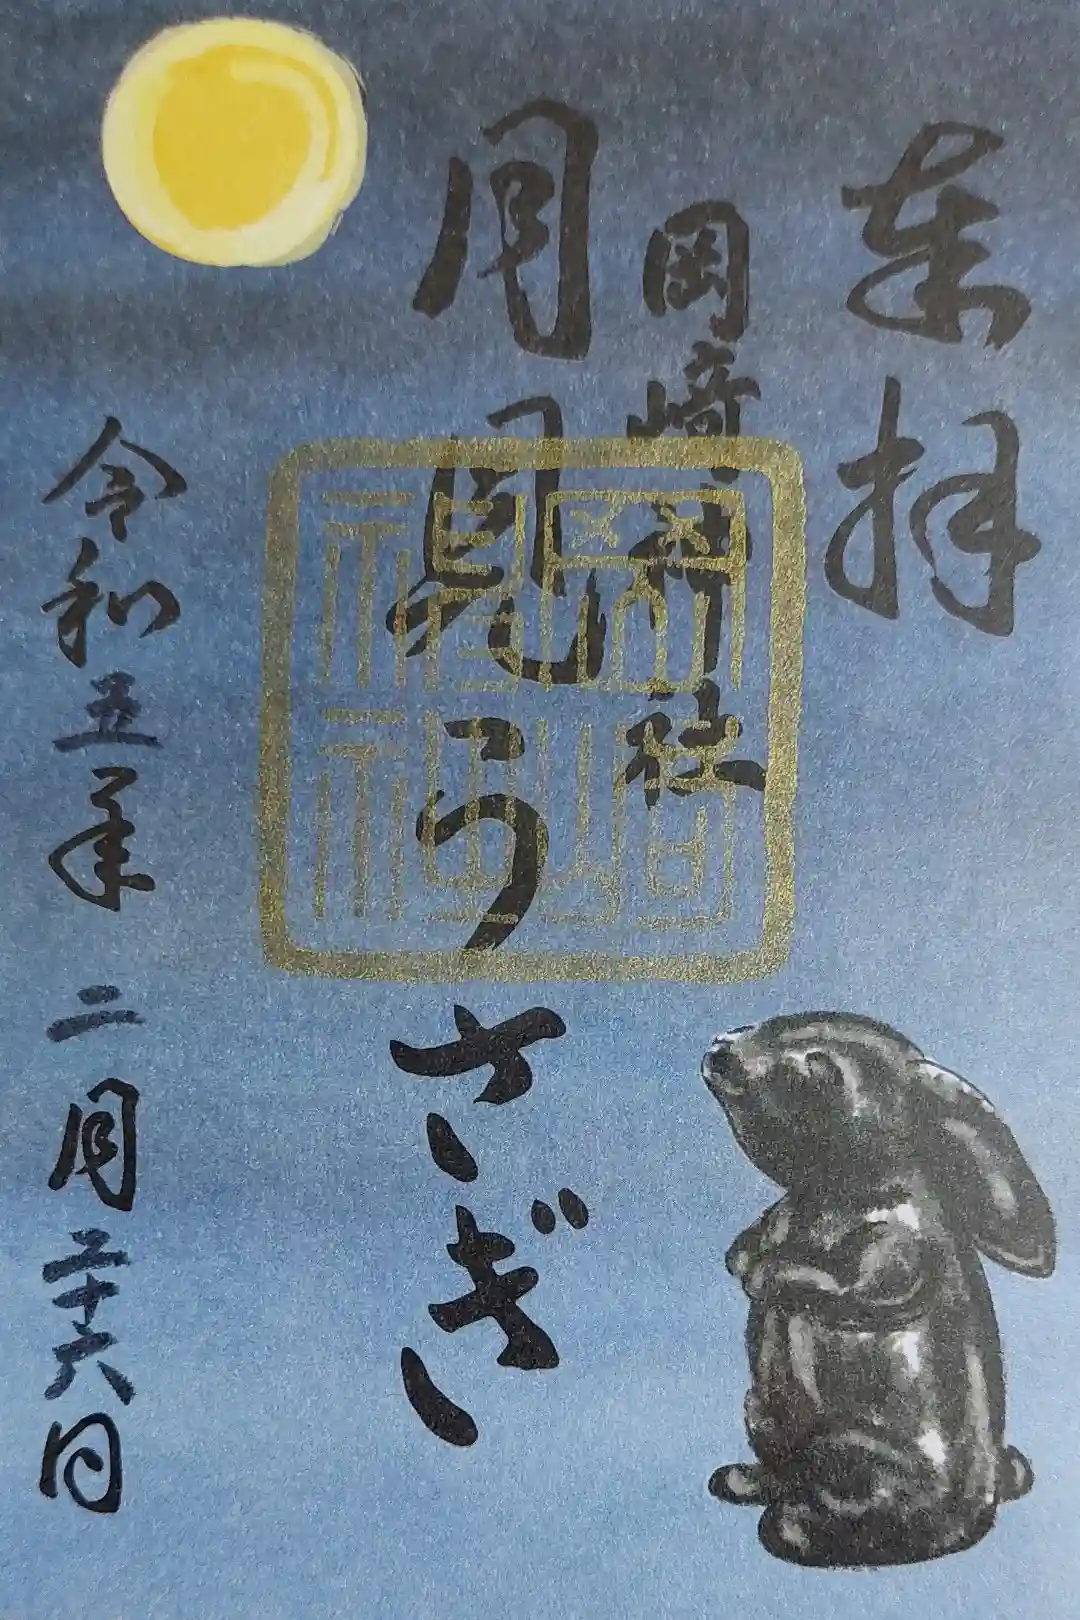 奉拝
岡﨑神社
月見うさぎ
令和五年 二月二十六日